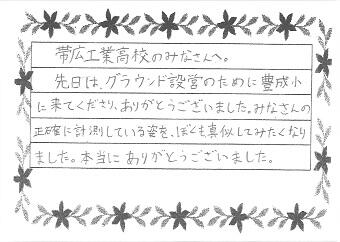 帯広工業高校のみなさんへ。
先日は、グラウンド設営のために豊成小
に来てくださり、ありがとうございました。みなさんの
正確に計測している姿を、ぼくも真似してみたくなり
ました。本当にありがとうございました。